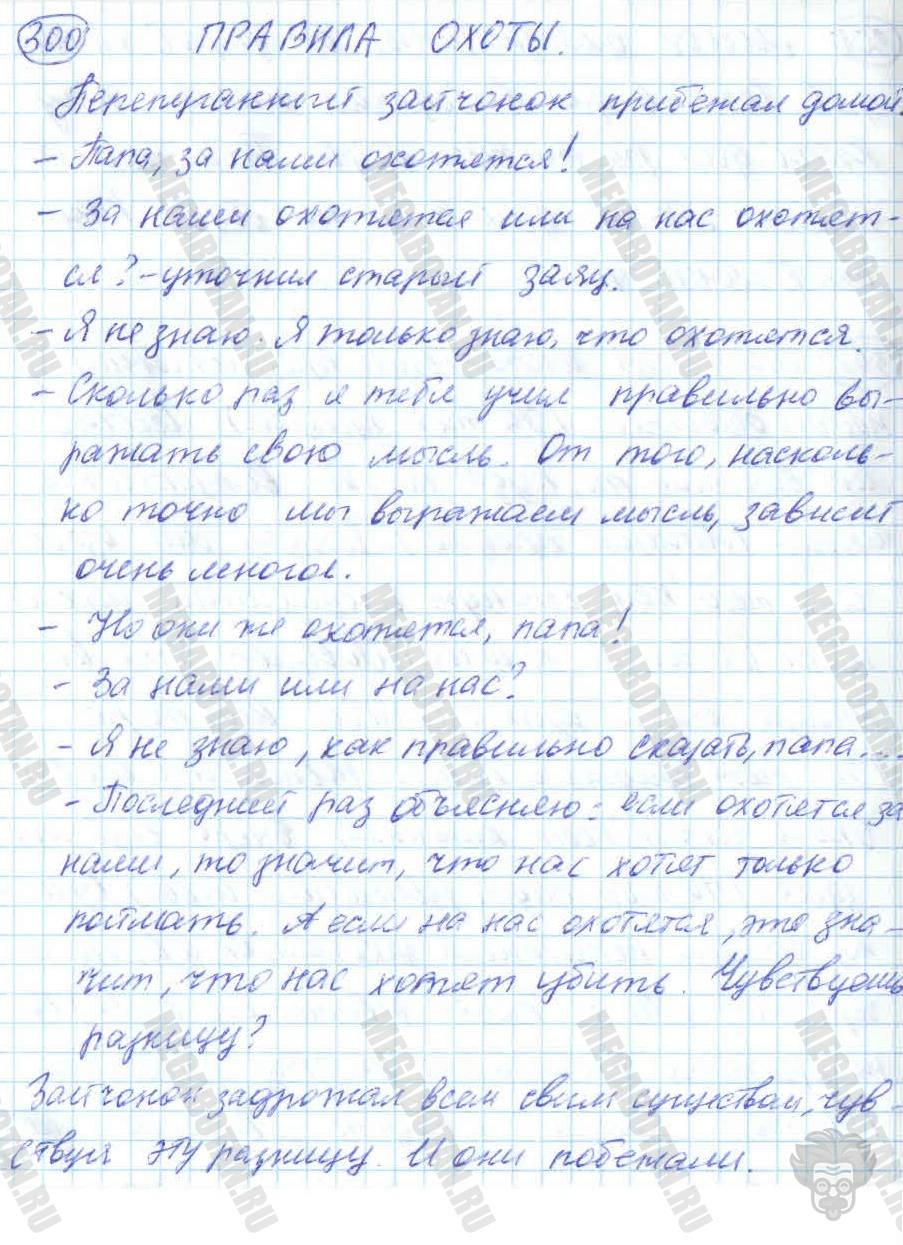 300 ПРАВИЛА ОХОТЫ.
Перепуганный зайчонок прибежал домой.
– Папа, за нами охотятся!
– За нами охотятся или на нас охотят-
ся? – уточнил старый заяц.
– Я не знаю. Я только знаю, что охотятся.
– Сколько раз я тебя учил правильно вы-
ражать свою мысль. От того, насколь-
ко точно мы выражаем мысль, зависит
очень многое.
– Но они же охотятся, папа!
– За нами или на нас?
– Я не знаю, как правильно сказать, папа...
– Последний раз объясняю: если охотятся за
нами, то значит, что нас хотят только
поймать. А если на нас охотятся, это зна-
чит, что нас хотят убить. Чувствуешь
разницу?
Зайчонок задрожал всем своим существом, чув-
ствуя эту разницу. И они побежали.
MEGABOTAN.RU